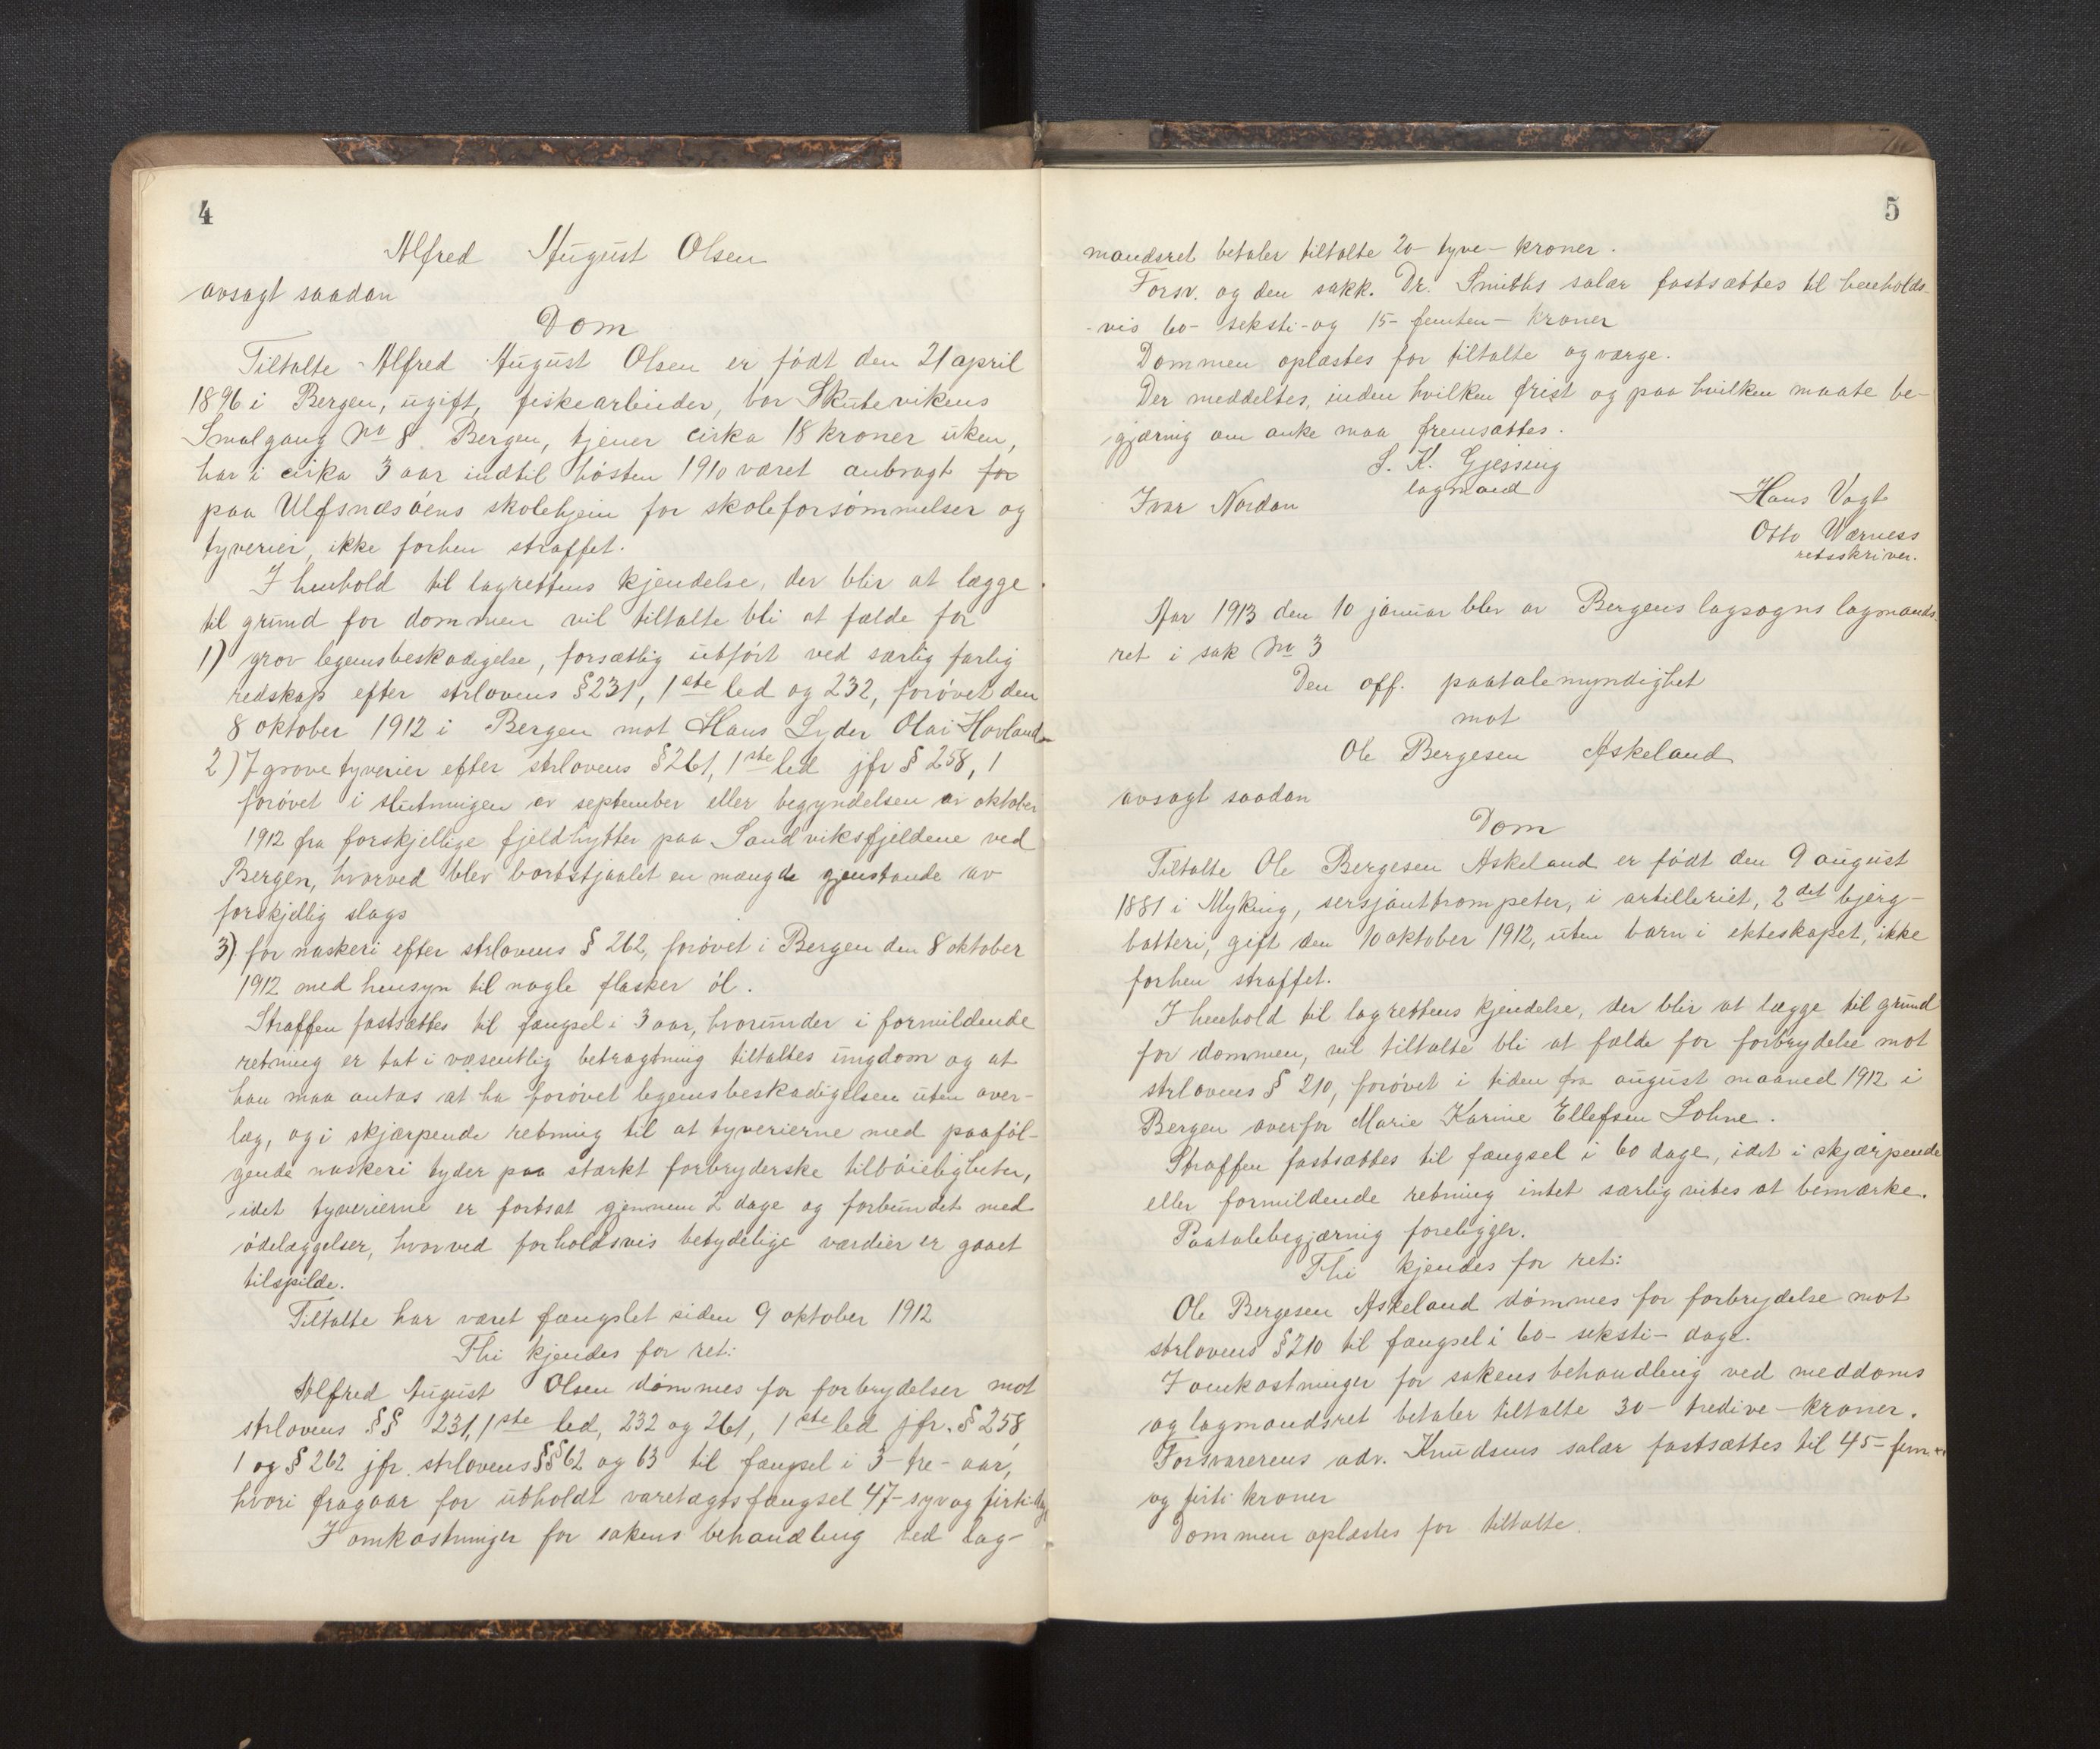 4
Alfred August Olsen
avsagt saadan
Dom
Tiltalte Alfred August Olsen er født den 21 april
1896 i Bergen, ugift, fiskearbeider, bor Skutevikens
Smalgang No 8 Bergen, tjener cirka 18 kroner uken,
har i cirka 3 aar indtil høsten 1910 været anbragt for
paa Ulfsnæsøens skolehjem for skoleforsømmelser og
tyverier, ikke forhen straffet.
I henhold til lagrettens kjendelse, der blir at lægge
til grund for dommen vil tiltalte bli at fælde for
1) grov legemsbeskadigelse, forsætlig utført ved særlig farlig
redskap efter strlovens § 231, 1ste led og 232, forøvet den
8 oktober 1912 i Bergen mot Hans Lyder Olai Hovland
2) 7 grove tyverier efter strlovens § 261, 1ste led jfr § 258, 1
forøvet i slutningen av september eller begyndelsen av oktober
1912 fra forskjellige fjeldhytter paa Sandviksfjeldene ved
Bergen, hvorved blev bortstjaalet en mængde gjenstande av
forskjellig slags
3) for naskeri efter strlovens § 262, forøvet i Bergen den 8 oktober
1912 med hensyn til nogle flasker øl.
Straffen fastsættes til fængsel i 3 aar, hvorunder i formildende
retning er tat i væsentlig betragtning tiltaltes ungdom og at
han maa antas at ha forøvet legemsbeskadigelsen uten over-
læg, og i skjærpende retning til at tyverierne med paaføl-
gende naskeri tyder paa stærkt forbryderske tilbøieligheter,
idet tyverierne er fortsat gjennem 2 dage og forbundet med
ødelæggelser, hvorved forholdsvis betydelige værdier er gaaet
tilspilde.
Tiltalte har været fængslet siden 9 oktober 1912
Thi kjendes for ret:
Alfred August Olsen dømmes for forbrydelser mot
strlovens §§ 231, 1ste led, 232 og 261, 1ste led jfr. § 258,
1 og § 262 jfr. strlovens §§ 62 og 63 til fængsel i 3- tre- aar,
hvori fragaar for utholdt varetægtsfængsel 47- syv og firti dage
I omkostninger for sakens behandling ved lag-
5
mandsret betaler tiltalte 20- tyve- kroner.
Forsv. og den sakk. Dr. Smiths salær fastsættes til henholds-
-vis 60- seksti- og 15- femten- kroner
Dommen oplæstes for tiltalte og værge.
Der meddeltes, inden hvilken frist og paa hvilken maate be-
gjæring om anke maa fremsættes.
S. K. Gjessing
lagmand
Ivar Nordan
Hans Vagt
Otto Wærness
retsskriver.
Aar 1913 den 10 januar blev av Bergens lagsogns lagmands
ret i sak No 3
Den off. paatalemyndighet
mot
Ole Bergesen Askeland
avsagt saadan
Dom
Tiltalte Ole Bergesen Askeland er født den 9 august
1881 i Myking, sersjanttrompeter, i artilleriet, 2det bjerg-
batteri, gift den 10 oktober 1912, uten barn i ekteskapet, ikke
forhen straffet.
I henhold til lagrettens kjendelse, der blir at lægge til grund
for dommen, vil tiltalte bli at fælde for forbrydelse mot
strlovens § 210, forøvet i tiden fra august maaned 1912 i
Bergen overfor Marie Karine Ellefsen Lohne.
Straffen fastsættes til fængsel i 60 dage, idet i skjærpende
eller formildende retning intet særlig vites at bemærke.
Paatalebegjæring foreligger.
Thi kjendes for ret:
Ole Bergesen Askeland dømmes for forbrydelse mot
strlovens § 210 til fængsel i 60- seksti- dage.
I omkostninger for sakens behandling ved meddoms
og lagmandsret betaler tiltalte 30- tredive- kroner.
Forsvarerens adv. Knudsens salær fastsættes til 45- fem
og firti kroner
Dommen oplæstes for tiltalte.